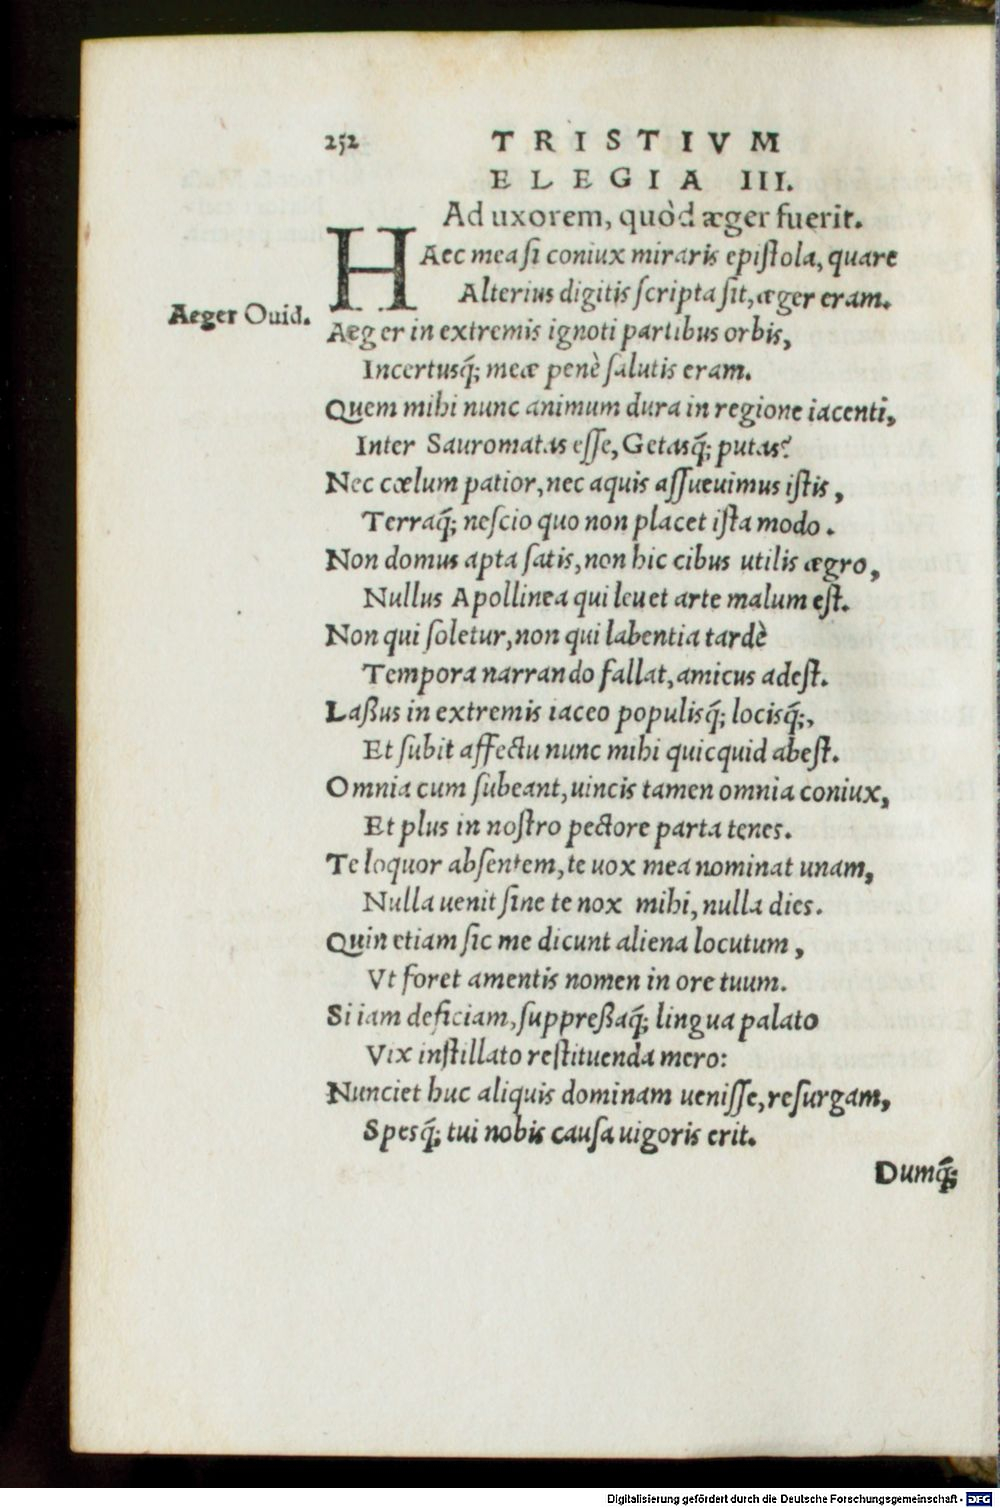 252 TRISTIVM
ELEGIA III.
Ad uxorem, quòd æger fuerit.
HAec mea si coniux miraris epistola, quare
Alterius digitis scripta sit, æger eram.
Aeger Ouid.
Aeger in extremis ignoti partibus orbis,
Incertusq́; meæ penè salutis eram.
Quem mihi nunc animum dura in regione iacenti,
Inter Sauromatas esse, Getasq́; putas?
Nec cœlum patior, nec aquis assueuimus istis,
Terraq́; nescio quo non placet ista modo.
Non domus apta satis, non hic cibus utilis ægro,
Nullus Apollinea qui leuet arte malum est.
Non qui soletur, non qui labentia tardè
Tempora narrando fallat, amicus adest.
Laßus in extremis iaceo populisq́; locisq́;,
Et subit affectu nunc mihi quicquid abest.
Omnia cum subeant, uincis tamen omnia coniux,
Et plus in nostro pectore parta tenes.
Te loquor absentem, te uox mea nominat unam,
Nulla uenit sine te nox mihi, nulla dies.
Quin etiam sic me dicunt aliena locutum,
Vt foret amentis nomen in ore tuum.
Si iam deficiam, suppreßaq́; lingua palato
Vix instillato restituenda mero:
Nunciet huc aliquis dominam uenisse, resurgam,
Spesq́; tui nobis causa uigoris erit.
Dumq́;
Digitalisierung gefördert durch die Deutsche Forschungsgemeinschaft - DFG